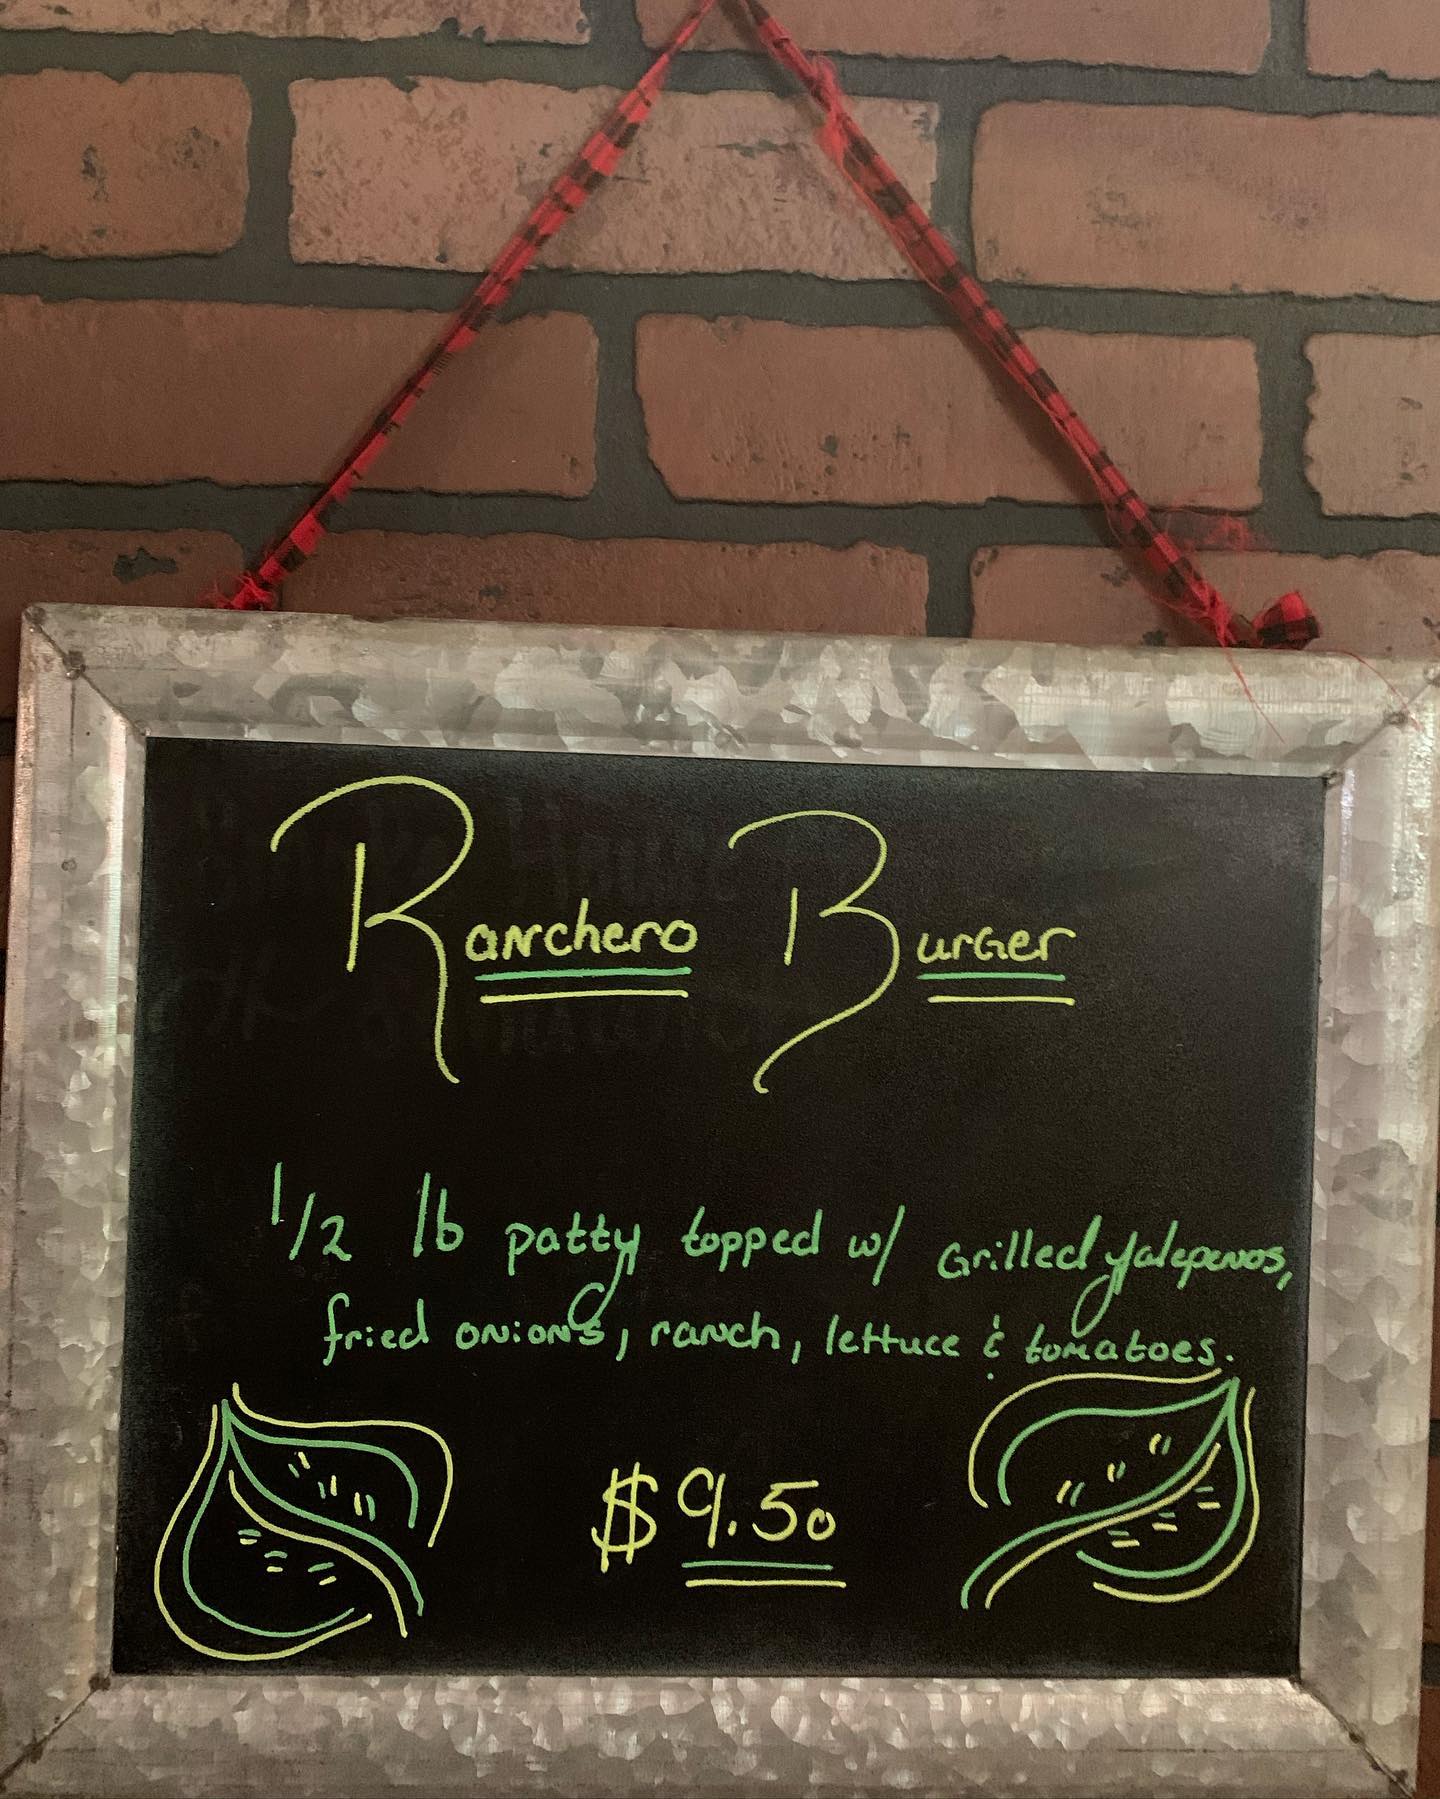 Ranchero Burger
1/2 lb patty topped w/ Grilled Jalepenos,
fried onions, ranch, lettuce & tomatoes.
$9.50